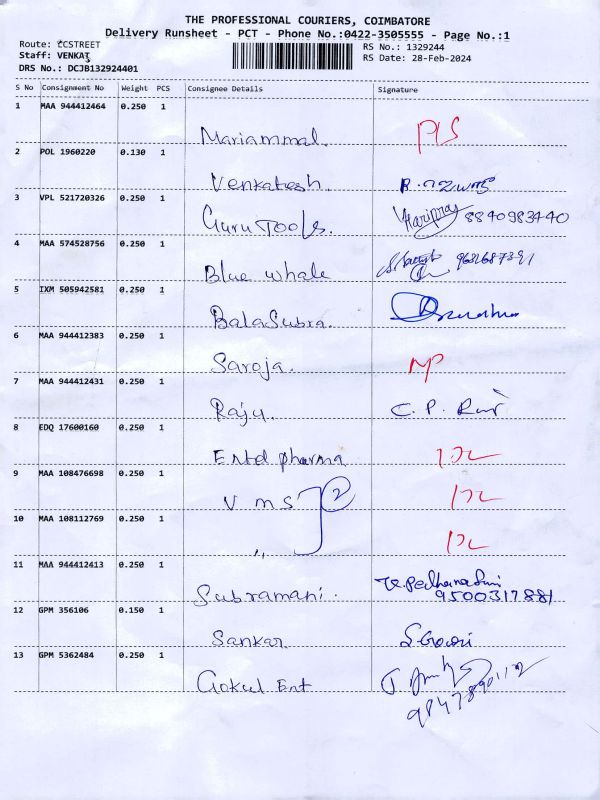 THE PROFESSIONAL COURIERS, COIMBATORE
Delivery Runsheet - PCT - Phone No.:0422-3505555 - Page No.:1
Route: CCSTREET
RS No.: 1329244
Staff: VENKAT
RS Date: 28-Feb-2024
DRS No.: DCJB132924401
S No Consignment No Weight PCS Consignee Details Signature
1 MAA 944412464 0.250 1
Mariammal. P/S
2 POL 1960220 0.130 1
Venkatesh.
3 VPL 521720326 0.250 1
Guru TOOLS. Hariprasy 8840983440
4 MAA 574528756 0.250 1
Blue whale
5 IXM 505942581 0.250 1
BalaSubra.
6 MAA 944412383 0.250 1
Saroja.
7 MAA 944412431 0.250 1
Raju. C. P.
8 EDQ 17600160 0.250 1
Entd pharma
9 MAA 108476698 0.250 1
V M S 2
10 MAA 108112769 0.250 1
"
11 MAA 944412413 0.250 1
Subramani.
9500317881
12 GPM 356106 0.150 1
Sankar S. Gowri
13 GPM 5362484 0.250 1
Gokul Ent